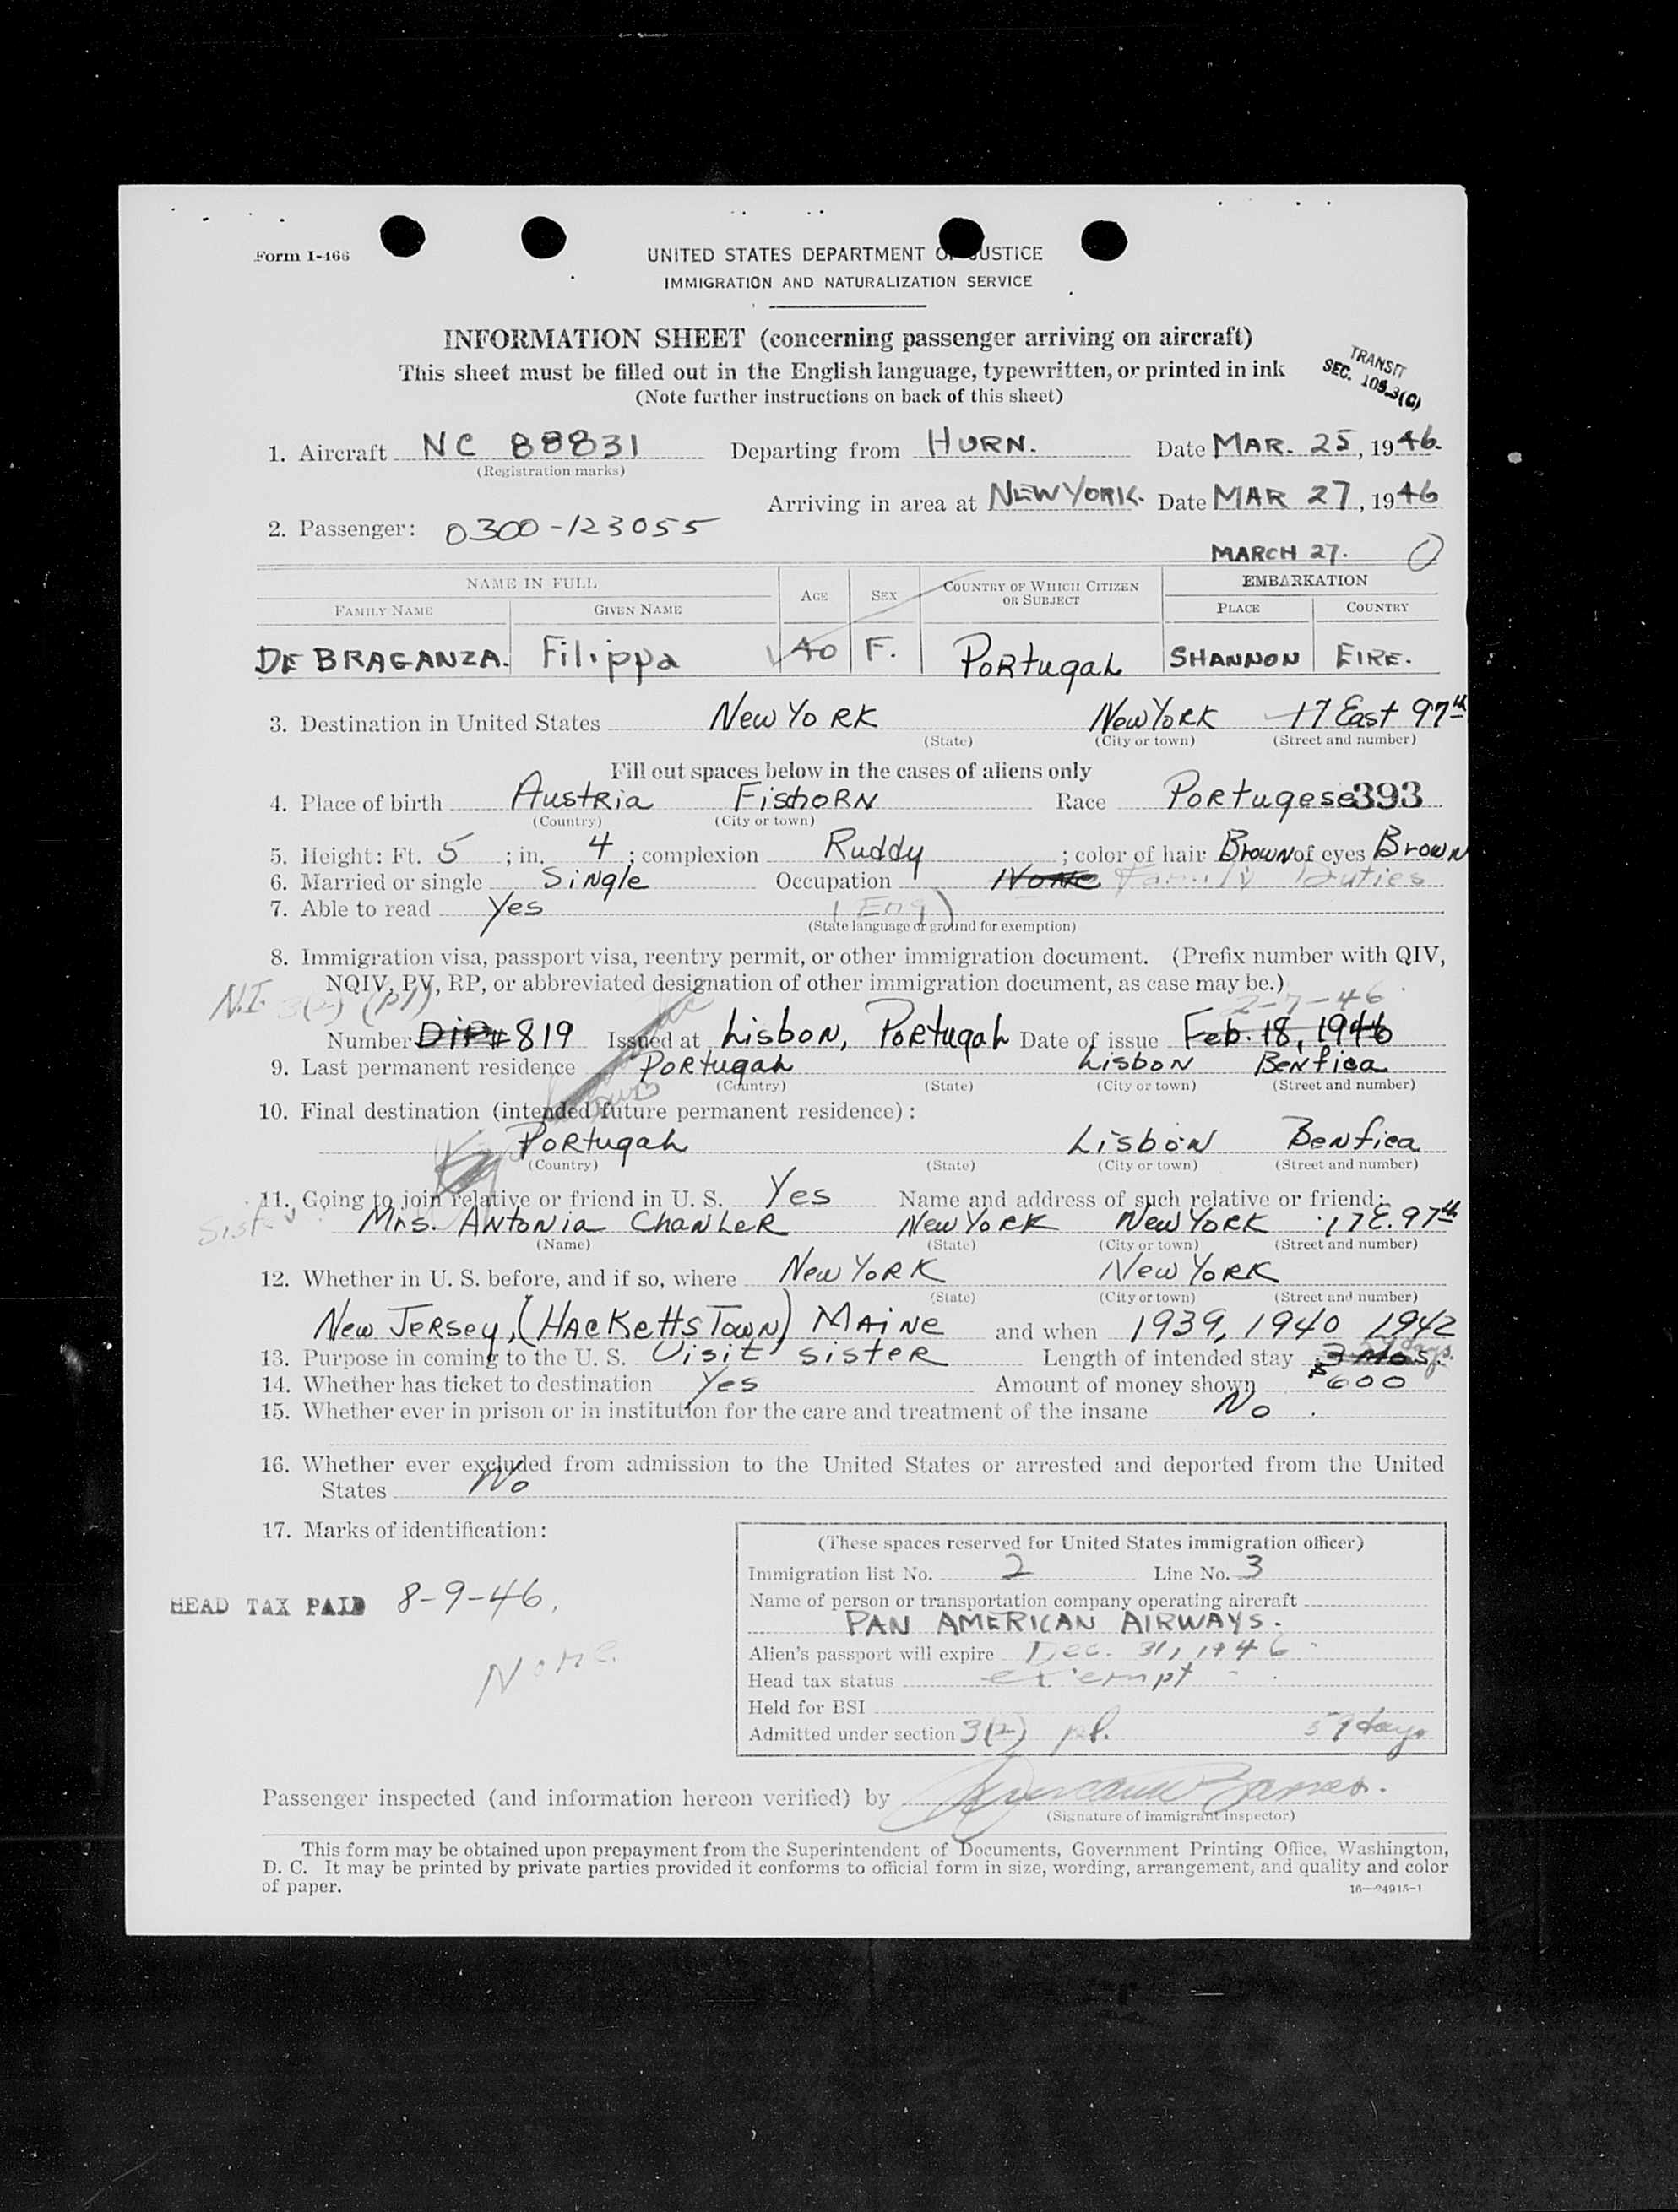 Form I-466
UNITED STATES DEPARTMENT OF JUSTICE
IMMIGRATION AND NATURALIZATION SERVICE
INFORMATION SHEET (concerning passenger arriving on aircraft)
This sheet must be filled out in the English language, typewritten, or printed in ink
(Note further instructions on back of this sheet)
TRANSIT
SEC. 105.3(C)
1. Aircraft NC 88831 Departing from HURN. Date MAR. 25, 1946.
(Registration marks)
Arriving in area at NEW YORK. Date MAR 27, 1946
2. Passenger: 0300-123055
MARCH 27.
NAME IN FULL AGE SEX COUNTRY OF WHICH CITIZEN OR SUBJECT EMBARKATION
FAMILY NAME GIVEN NAME PLACE COUNTRY
DE BRAGANZA. Filippa 40 F. PORtugaL SHANNON EIRE.
3. Destination in United States New YoRK New YoRK 17 East 97th
(State) (City or town) (Street and number)
Fill out spaces below in the cases of aliens only
4. Place of birth AustRia FishoRN Race PoRtugese 393
(Country) (City or town)
5. Height: Ft. 5 ; in. 4 ; complexion Ruddy ; color of hair Brown of eyes Brown
6. Married or single Single Occupation None Family Duties
7. Able to read Yes (Eng)
(State language or ground for exemption)
8. Immigration visa, passport visa, reentry permit, or other immigration document. (Prefix number with QIV,
NQIV, PV, RP, or abbreviated designation of other immigration document, as case may be.)
N.I. 3(2) (P1) 2-7-46
Number DIP# 819 Issued at Lisbon, PoRtugaL Date of issue Feb. 18, 1946
9. Last permanent residence PoRtugaL Lisbon Benfica
(Country) (State) (City or town) (Street and number)
10. Final destination (intended future permanent residence):
PoRtugaL Lisbon Benfica
(Country) (State) (City or town) (Street and number)
11. Going to join relative or friend in U. S. Yes Name and address of such relative or friend:
Sister Mrs. Antonia ChanLeR New YoRK New YoRK 17 E. 97th
(Name) (State) (City or town) (Street and number)
12. Whether in U. S. before, and if so, where New YoRK New YoRK
(State) (City or town) (Street and number)
New Jersey, (HacKettsTown) Maine and when 1939, 1940 1942
13. Purpose in coming to the U. S. Visit sisteR Length of intended stay 3 Mos. days.
14. Whether has ticket to destination Yes Amount of money shown $600
15. Whether ever in prison or in institution for the care and treatment of the insane No
16. Whether ever excluded from admission to the United States or arrested and deported from the United
States No
17. Marks of identification:
HEAD TAX PAID 8-9-46.
None.
(These spaces reserved for United States immigration officer)
Immigration list No. 2 Line No. 3
Name of person or transportation company operating aircraft
PAN AMERICAN AIRWAYS.
Alien's passport will expire Dec. 31, 1946
Head tax status exempt
Held for BSI
Admitted under section 3(2) days
Passenger inspected (and information hereon verified) by
(Signature of immigrant inspector)
This form may be obtained upon prepayment from the Superintendent of Documents, Government Printing Office, Washington,
D. C. It may be printed by private parties provided it conforms to official form in size, wording, arrangement, and quality and color
of paper.
16—24915-1